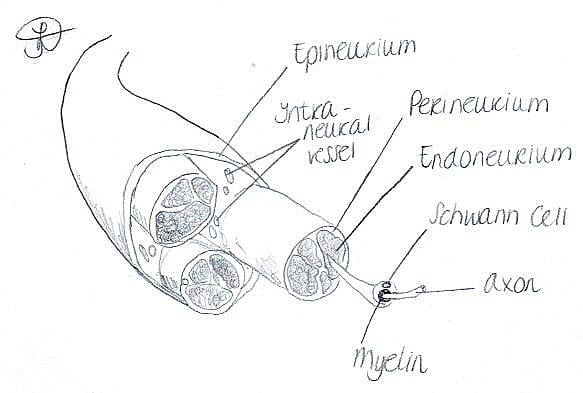 Epineurium
Intra-
neural
vessel
Perineurium
Endoneurium
Schwann Cell
axon
Myelin